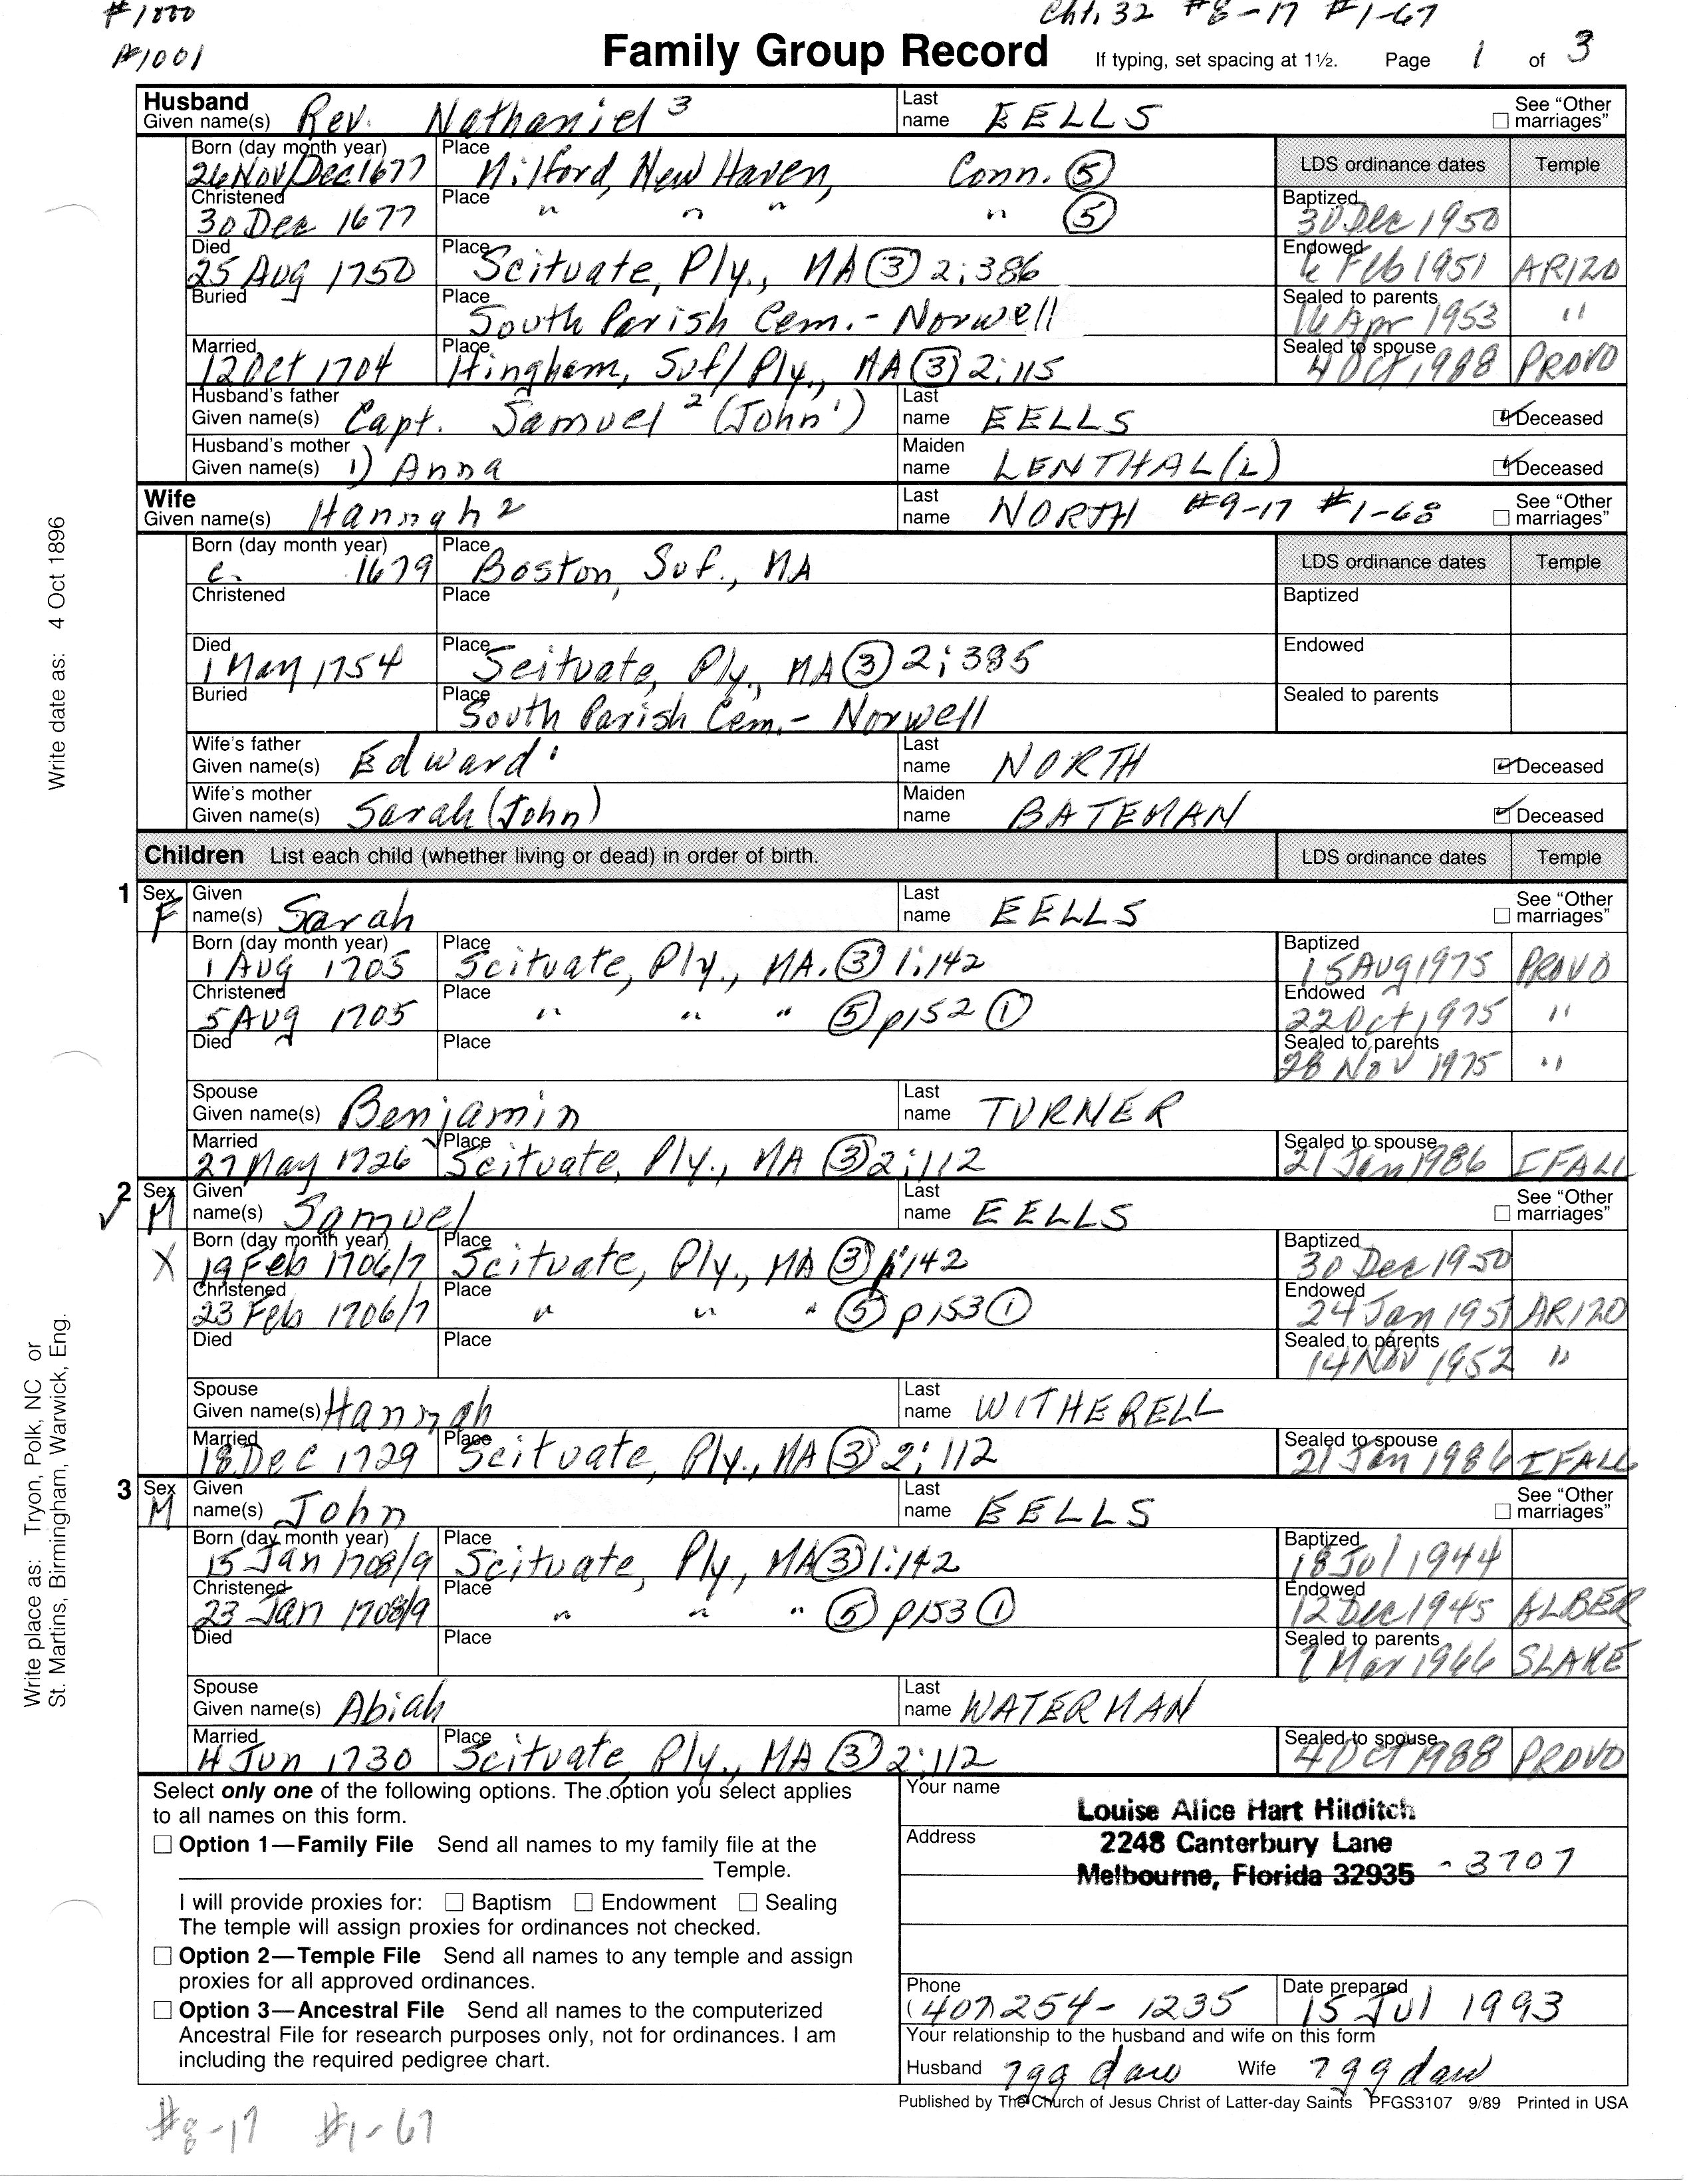 #1000
Cht. 32 #8-17 #1-67
#1001
Family Group Record If typing, set spacing at 1½. Page 1 of 3
Husband
Given name(s) Rev. Nathaniel 3 Last name EELLS See "Other marriages"
Born (day month year) 26 Nov/Dec 1677 Place Milford, New Haven, Conn. (5) LDS ordinance dates Temple
Christened 30 Dec 1677 Place " " " " (5) Baptized 30 Dec 1950
Died 25 Aug 1750 Place Scituate, Ply., MA (3) 2:386 Endowed 6 Feb 1951 ARIZO
Buried Place South Parish Cem. - Norwell Sealed to parents 16 Apr 1953 "
Married 12 Oct 1704 Place Hingham, Suf/Ply., MA (3) 2:115 Sealed to spouse 4 Oct 1988 PROVO
Husband's father
Given name(s) Capt. Samuel 2 (John 1) Last name EELLS Deceased
Husband's mother
Given name(s) 1) Anna Maiden name LENTHAL(L) Deceased
Wife
Given name(s) Hannah 2 Last name NORTH #9-17 #1-68 See "Other marriages"
Born (day month year) c. 1679 Place Boston, Suf., MA LDS ordinance dates Temple
Christened Place Baptized
Died 1 May 1754 Place Scituate, Ply., MA (3) 2:385 Endowed
Buried Place South Parish Cem. - Norwell Sealed to parents
Wife's father
Given name(s) Edward 1 Last name NORTH Deceased
Wife's mother
Given name(s) Sarah (John) Maiden name BATEMAN Deceased
Children List each child (whether living or dead) in order of birth. LDS ordinance dates Temple
1 Sex F Given name(s) Sarah Last name EELLS See "Other marriages"
Born (day month year) 1 Aug 1705 Place Scituate, Ply., MA. (3) 1:142 Baptized 15 Aug 1975 PROVO
Christened 5 Aug 1705 Place " " " (5) p152 (1) Endowed 22 Oct 1975 "
Died Place Sealed to parents 28 Nov 1975 "
Spouse
Given name(s) Benjamin Last name TURNER
Married 27 May 1726 Place Scituate, Ply., MA (3) 2:112 Sealed to spouse 21 Jan 1986 IFALL
2 Sex M Given name(s) Samuel Last name EELLS See "Other marriages"
X Born (day month year) 19 Feb 1706/7 Place Scituate, Ply., MA (3) 1:142 Baptized 30 Dec 1950
Christened 23 Feb 1706/7 Place " " " (5) p153 (1) Endowed 24 Jan 1951 ARIZO
Died Place Sealed to parents 14 Nov 1952 "
Spouse
Given name(s) Hannah Last name WITHERELL
Married 18 Dec 1729 Place Scituate, Ply., MA (3) 2:112 Sealed to spouse 21 Jan 1986 IFALL
3 Sex M Given name(s) John Last name EELLS See "Other marriages"
Born (day month year) 15 Jan 1708/9 Place Scituate, Ply, MA (3) 1:142 Baptized 18 Jul 1944
Christened 23 Jan 1708/9 Place " " " (5) p153 (1) Endowed 12 Dec 1945 ALBER
Died Place Sealed to parents 9 Mar 1966 SLAKE
Spouse
Given name(s) Abiah Last name WATERMAN
Married 4 Jun 1730 Place Scituate, Ply., MA (3) 2:112 Sealed to spouse 4 Oct 1988 PROVO
Select only one of the following options. The option you select applies
to all names on this form.
Option 1—Family File Send all names to my family file at the
Temple.
I will provide proxies for: Baptism Endowment Sealing
The temple will assign proxies for ordinances not checked.
Option 2—Temple File Send all names to any temple and assign
proxies for all approved ordinances.
Option 3—Ancestral File Send all names to the computerized
Ancestral File for research purposes only, not for ordinances. I am
including the required pedigree chart.
Your name Louise Alice Hart Hilditch
Address 2248 Canterbury Lane
Melbourne, Florida 32935 -3707
Phone (407) 254-1235 Date prepared 15 Jul 1993
Your relationship to the husband and wife on this form
Husband 7gg dau Wife 7gg dau
Published by The Church of Jesus Christ of Latter-day Saints PFGS3107 9/89 Printed in USA
#8-17 #1-67
Write date as: 4 Oct 1896
Write place as: Tryon, Polk, NC or
St. Martins, Birmingham, Warwick, Eng.